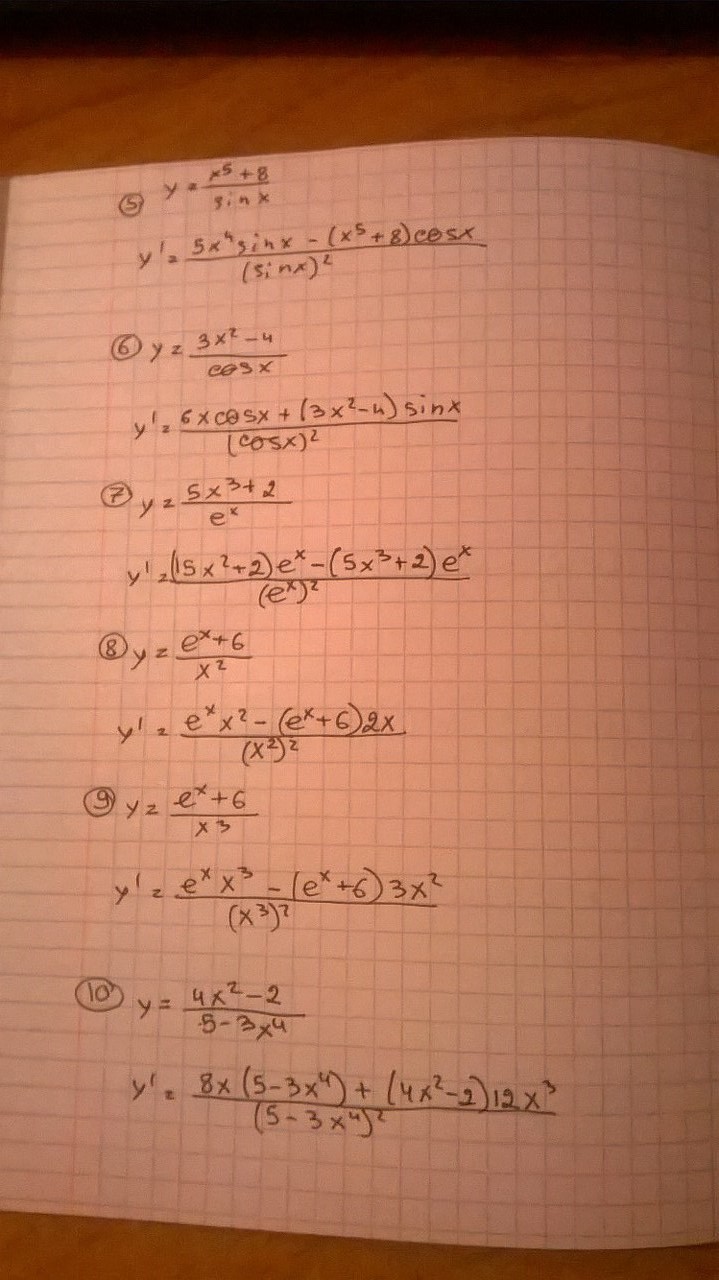 ⑤ y = (x⁵ + 8)/(sin x)
y' = (5x⁴ sin x - (x⁵ + 8) cos x)/((sin x)²)
⑥ y = (3x² - 4)/(cos x)
y' = (6x cos x + (3x² - 4) sin x)/((cos x)²)
⑦ y = (5x³ + 2)/(eˣ)
y' = ((15x² + 2)eˣ - (5x³ + 2)eˣ)/((eˣ)²)
⑧ y = (eˣ + 6)/(x²)
y' = (eˣ x² - (eˣ + 6)2x)/((x²)²)
⑨ y = (eˣ + 6)/(x³)
y' = (eˣ x³ - (eˣ + 6)3x²)/((x³)²)
⑩ y = (4x² - 2)/(5 - 3x⁴)
y' = (8x(5 - 3x⁴) + (4x² - 2)12x³)/((5 - 3x⁴)²)